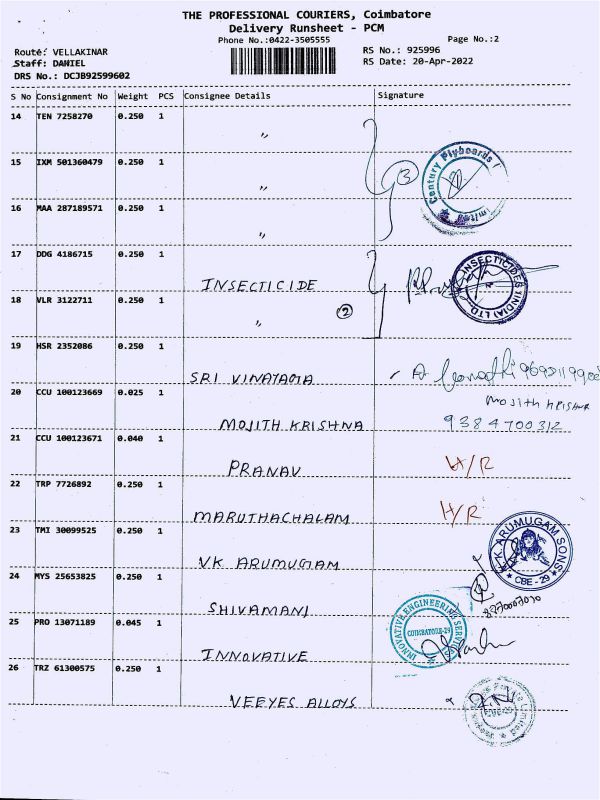 THE PROFESSIONAL COURIERS, Coimbatore
Delivery Runsheet - PCM
Phone No.:0422-3505555
Page No.:2
Route: VELLAKINAR
RS No.: 925996
Staff: DANIEL
RS Date: 20-Apr-2022
DRS No.: DCJB92599602
S No Consignment No Weight PCS Consignee Details Signature
14 TEN 7258270 0.250 1
〃
15 IXM 501360479 0.250 1
Century Plyboards
〃
16 MAA 287189571 0.250 1
〃
17 DDG 4186715 0.250 1
INSECTICIDE
INSECTICIDES (INDIA) LTD.
18 VLR 3122711 0.250 1
〃 2
19 HSR 2352086 0.250 1
SRI VINAYAGA
20 CCU 100123669 0.025 1
MOJITH KRISHNA
MOJITH KRISHNA
9384700312
21 CCU 100123671 0.040 1
PRANAV H/R
22 TRP 7726892 0.250 1
MARUTHACHALAM H/R
23 TMI 30099525 0.250 1
VK ARUMUGAM
K. ARUMUGAM SONS
CBE - 29
24 MYS 25653825 0.250 1
SHIVAMANI
25 PRO 13071189 0.045 1
INNOVATIVE
INNOVATIVE ENGINEERING SERVICE
COIMBATORE-29
26 TRZ 61300575 0.250 1
VEEYES ALLOYS